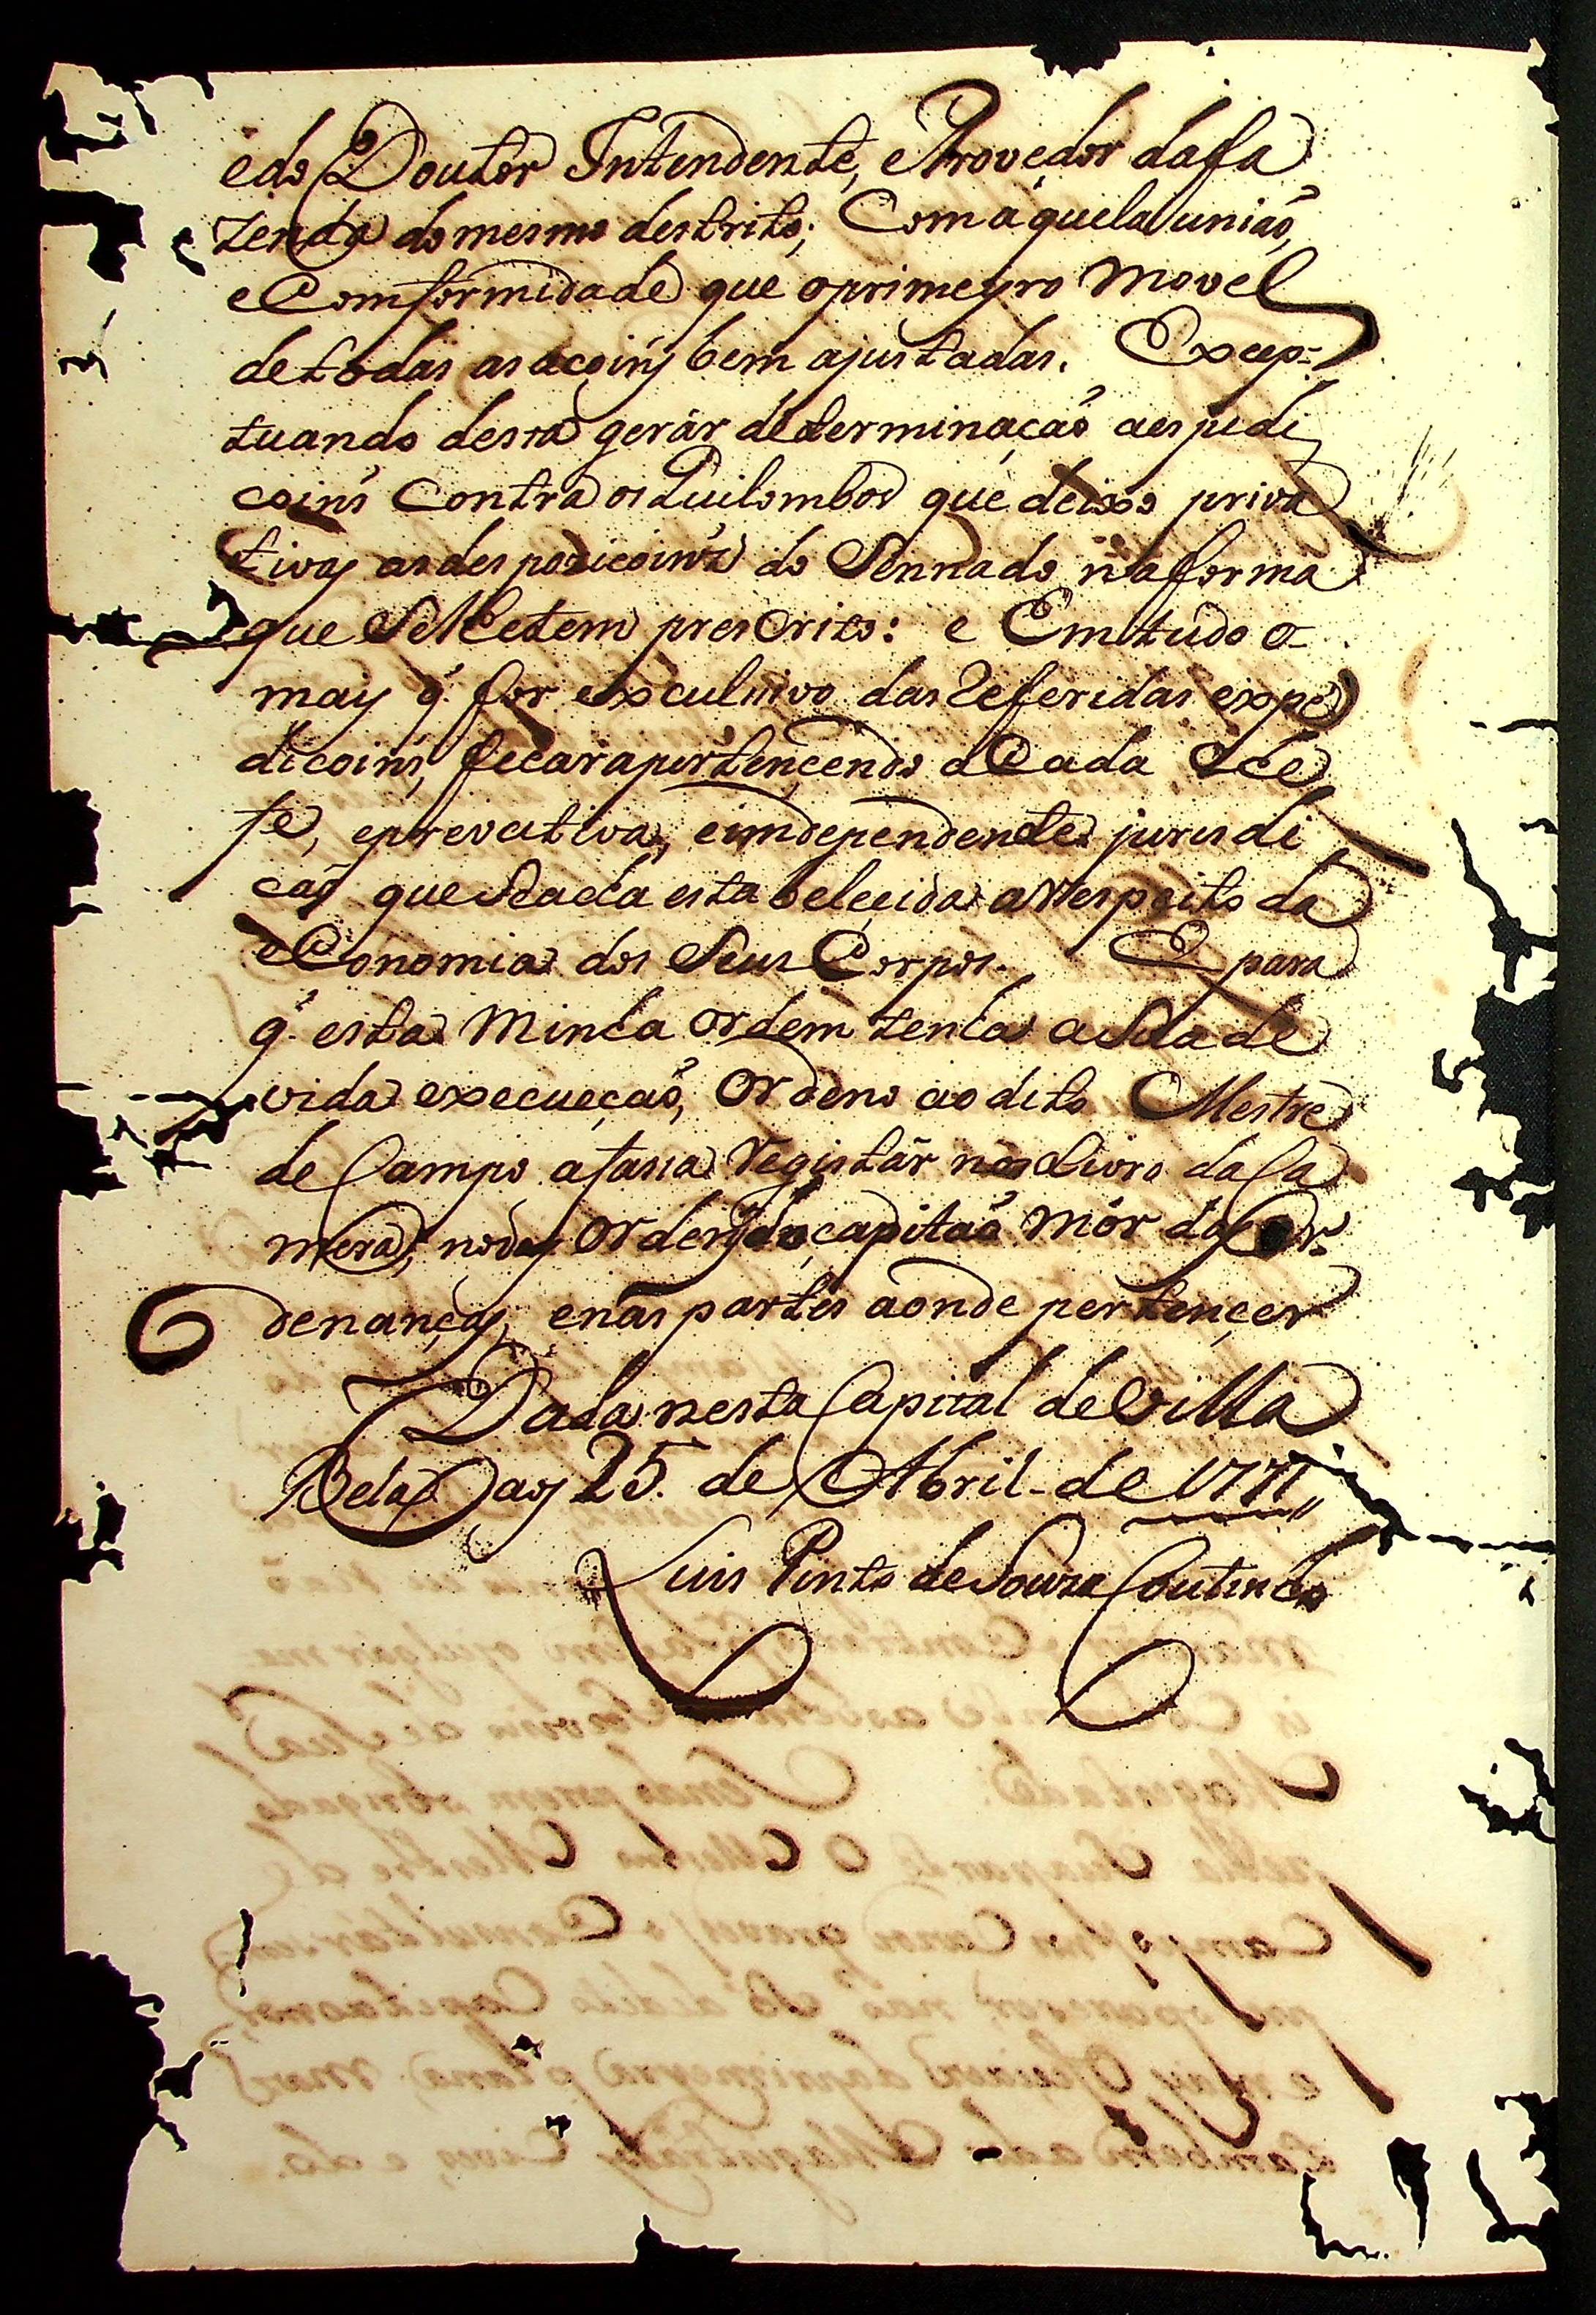 e do Doutor Intendente, e Provedor da fa
zenda do mesmo destrito; Com a quela união,
e Comformidade que o primeyro movel
de todas as açoins bem ajustadas. Excep-
tuando desta gerár determinação as pedi
coins Contra os Quilombos que deixo priva
tivas as despozicoins do Sennado na forma
que Se lhe tem prescrito: e Em tudo o
mais q. for exculsivo das Referidas expe
dicoins, ficara pertencendo a Cada Che
fe, e prevativa, e independente jurisdi
cão que Se acha estabelecida a Respeito da
eConomia dos Seus Corpos. E para
q. esta Minha ordem tenha a Sua de
vida execuecão, Ordeno ao dito Mestre
de Campo a fassa Registár nos Livro da Ca
mera, no das Ordens do capitão Mór das Or-
denanças, e nas partes aonde pertencer
Dada nesta Capital de Villa
Bela Aos 25. de Abril de 1771
Luis Pinto de Souza Coutinho